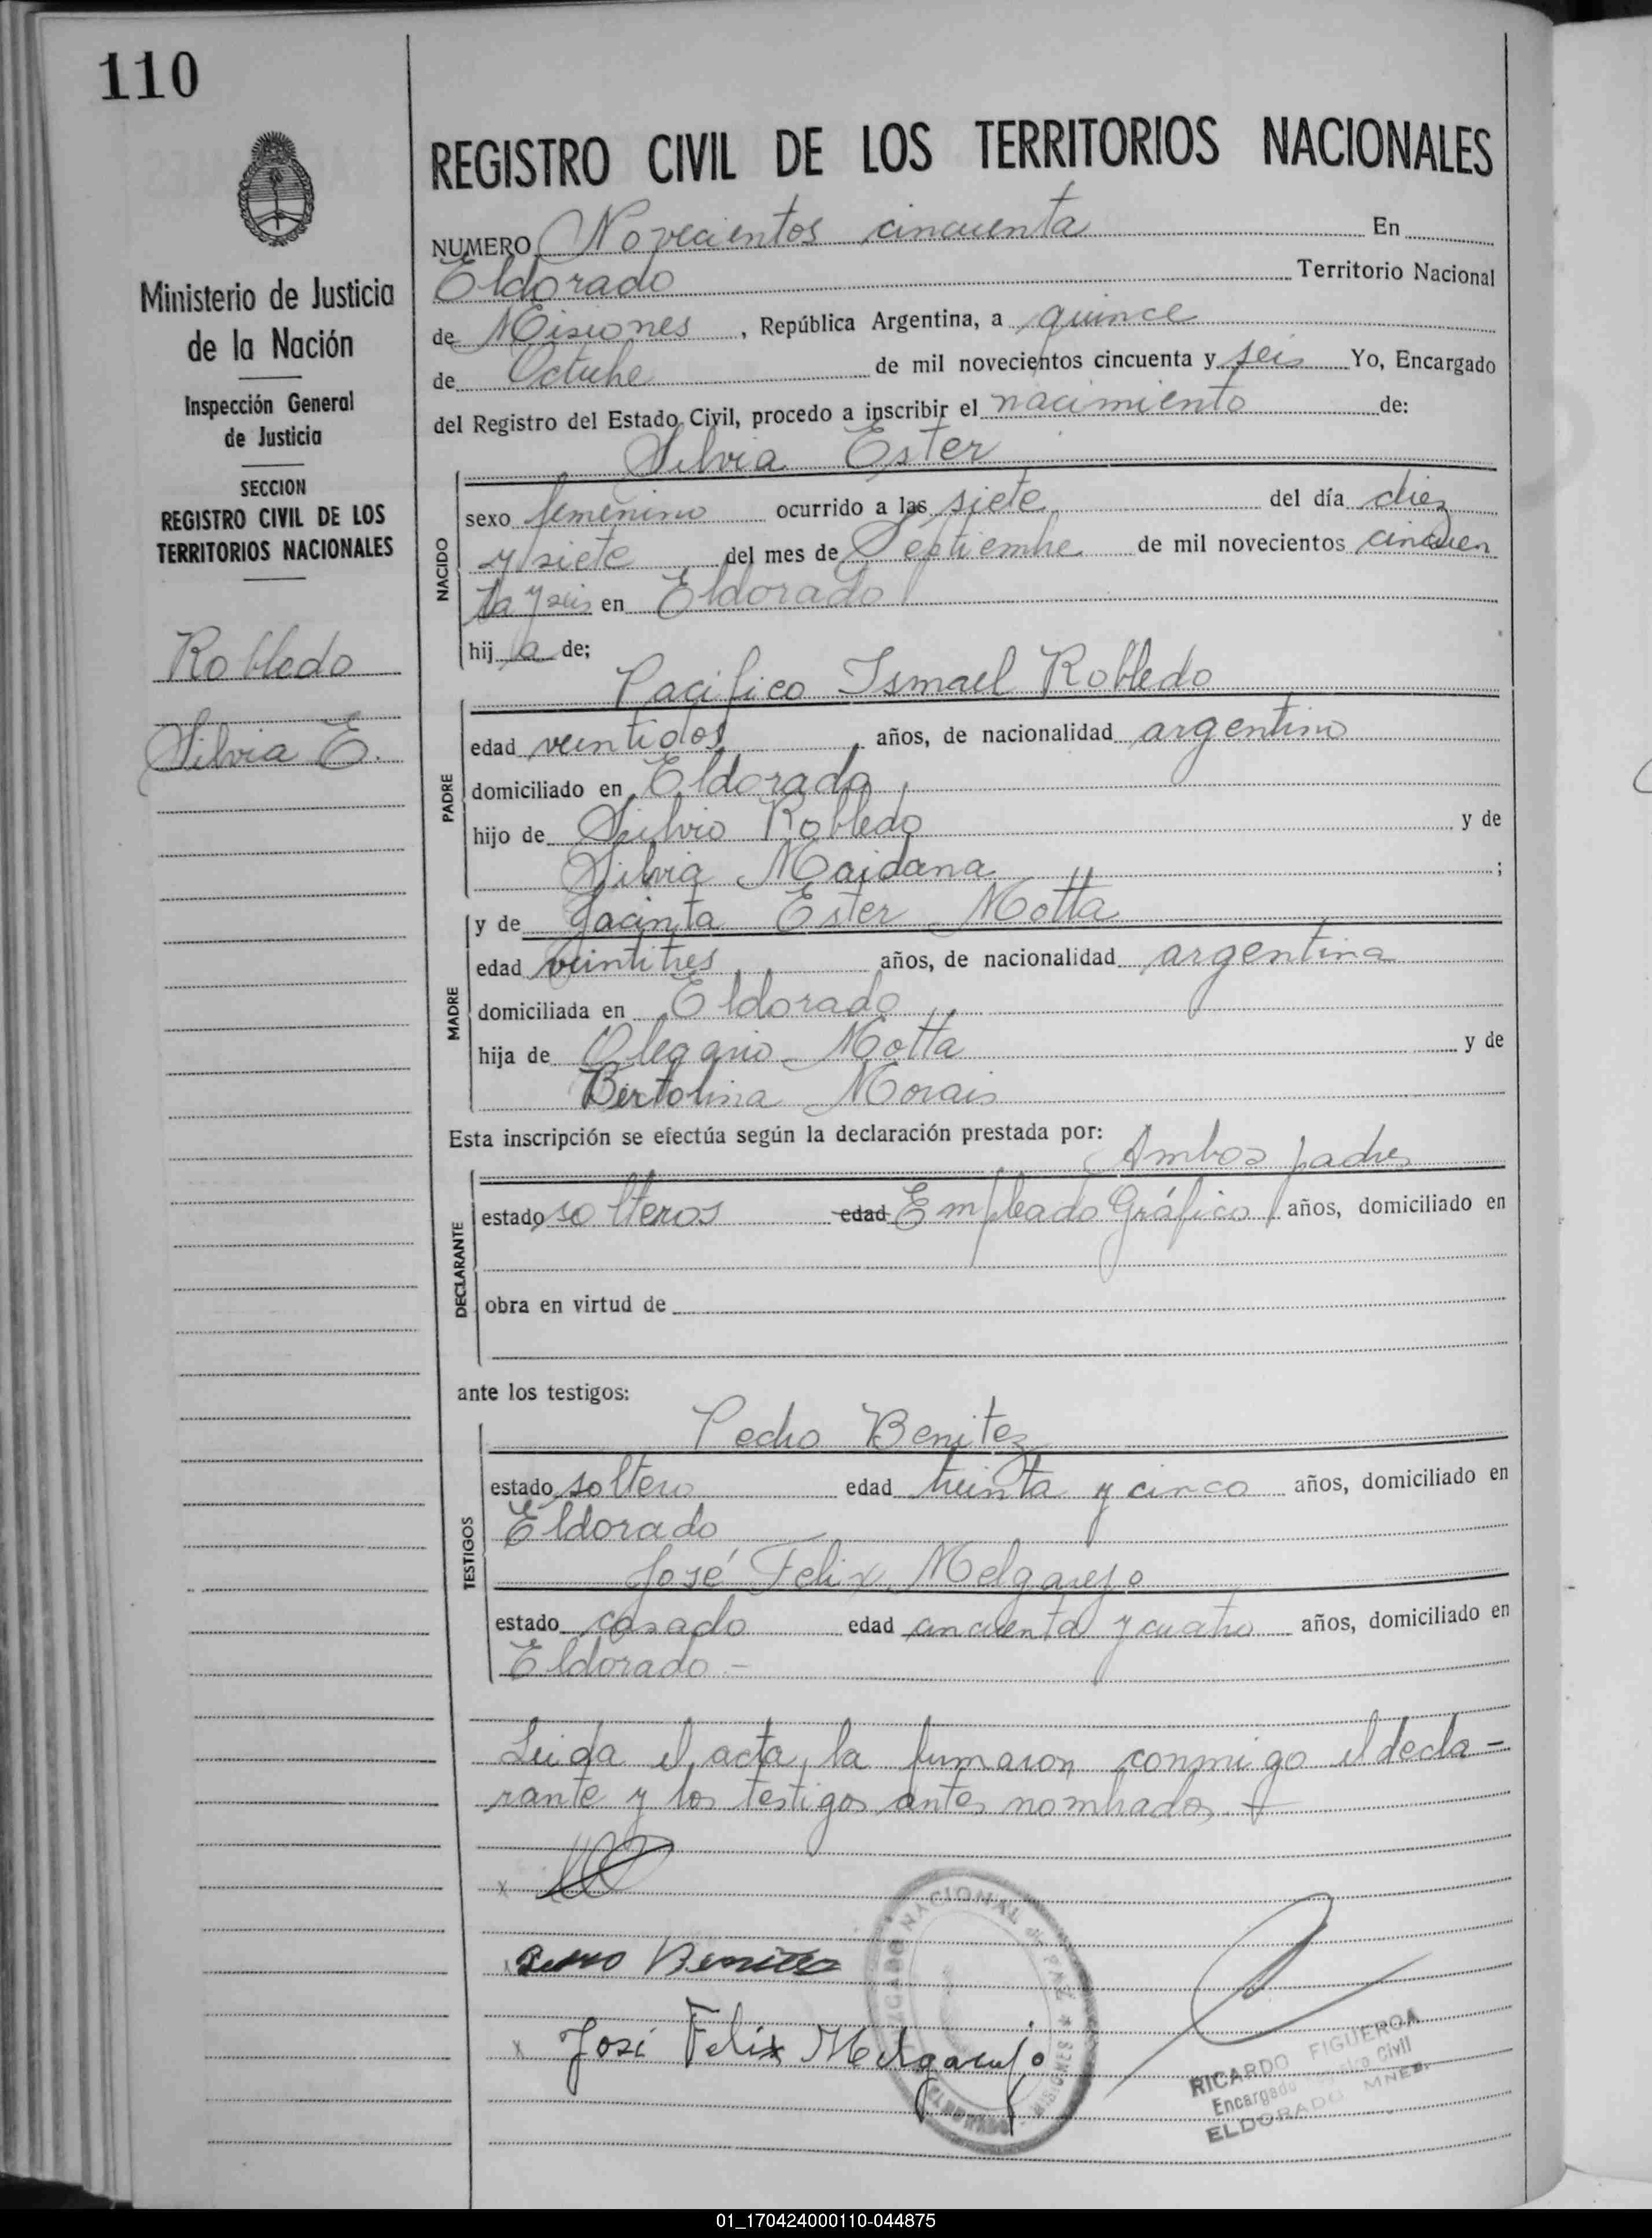 110
REGISTRO CIVIL DE LOS TERRITORIOS NACIONALES
Ministerio de Justicia
de la Nación
Inspección General
de Justicia
SECCION
REGISTRO CIVIL DE LOS
TERRITORIOS NACIONALES
Robledo
Silvia E.
NUMERO Novecientos cincuenta En
Eldorado Territorio Nacional
de Misiones, República Argentina, a quince
de Octubre de mil novecientos cincuenta y seis Yo, Encargado
del Registro del Estado Civil, procedo a inscribir el nacimiento de:
Silvia Ester
NACIDO
sexo femenino ocurrido a las siete del día diez
y siete del mes de Septiembre de mil novecientos cincuen
ta y seis en Eldorado
hij a de;
Pacifico Ismael Robledo
PADRE
edad veintidos años, de nacionalidad argentino
domiciliado en Eldorado
hijo de Silvio Robledo y de
Silvia Maidana ;
y de Jacinta Ester Motta
MADRE
edad veintitres años, de nacionalidad argentina
domiciliada en Eldorado
hija de Olegario Motta y de
Bertolina Morais
Esta inscripción se efectúa según la declaración prestada por:
Ambos padres
DECLARANTE
estado solteros edad Empleado Gráfico años, domiciliado en
obra en virtud de
ante los testigos:
Pedro Benitez
TESTIGOS
estado soltero edad treinta y cinco años, domiciliado en
Eldorado
José Felix Melgarejo
estado casado edad cincuenta y cuatro años, domiciliado en
Eldorado -
Leida el acta, la firmaron conmigo el decla-
rante y los testigos antes nombrados.
x
Benitez
x José Felix Melgarejo
JUZGADO NACIONAL de PAZ * MISIONES ELDORADO
RICARDO FIGUEROA
Encargado Civil
ELDORADO MNES.
01_170424000110-044875